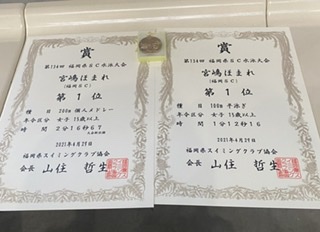 賞
第134回 福岡県SC水泳大会
宮嶋ほまれ
(福岡SC)
第1位
種目 200m 個人メドレー
年令区分 女子 15歳以上
時間 2分16秒67
2025年4月29日
福岡県スイミングクラブ協会
会長 山住 哲生
賞
第134回 福岡県SC水泳大会
宮嶋ほまれ
(福岡SC)
第1位
種目 100m 平泳ぎ
年令区分 女子 15歳以上
時間 1分12秒16
2025年4月29日
福岡県スイミングクラブ協会
会長 山住 哲生